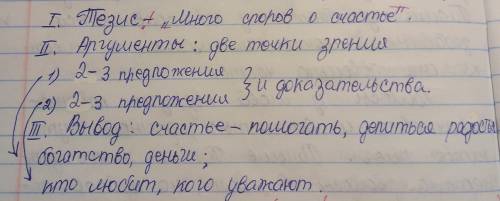 I. Тезис – „Много споров о счастье".
II. Аргументы: две точки зрения
1) 2-3 предложения
2) 2-3 предложения } и доказательства.
III. Вывод: счастье – помогать, делиться радостью
богатство, деньги;
кто любит, кого уважают.